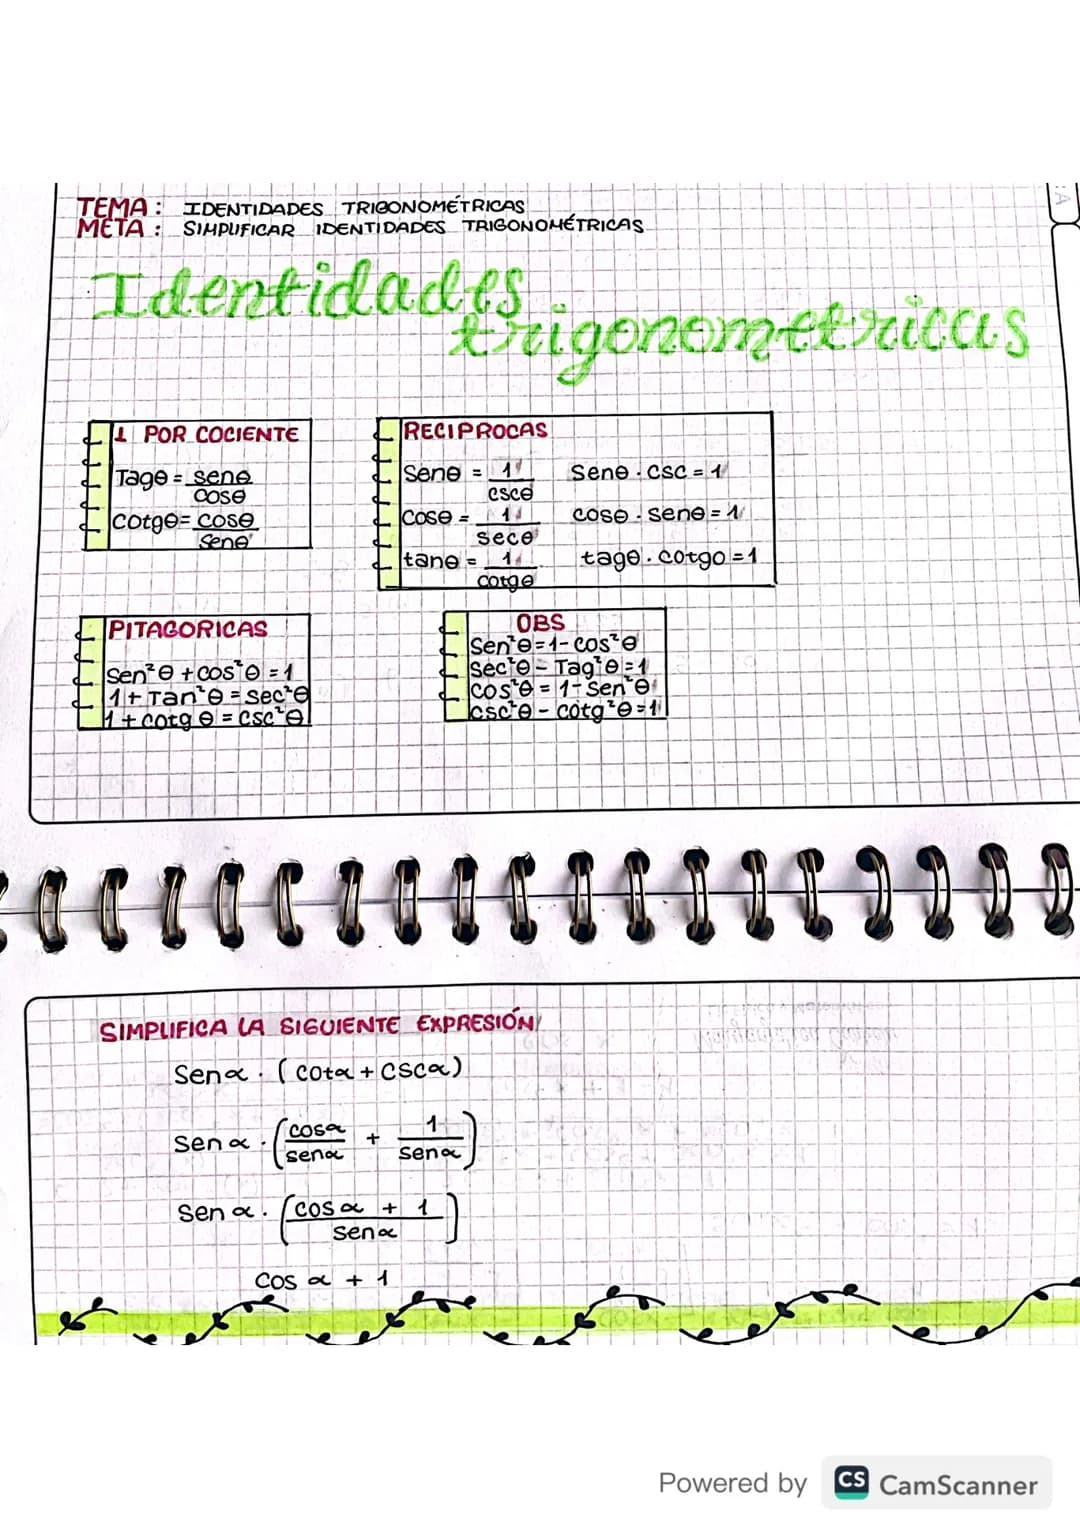 TEMA: IDENTIDADES TRIGONOMÉTRICAS
META: SIMPLIFICAR IDENTIDADES TRIGONOMÉTRICAS
Identidades
trigonometricas
1 POR COCIENTE
Tagθ = senθ
cosθ
cotgθ = cosθ
senθ
RECIPROCAS
Senθ = 1 Senθ · csc = 1
cscθ
Cosθ = 1 cosθ · senθ = 1
secθ
tanθ = 1 tagθ · cotgo = 1
cotgθ
PITAGORICAS
Sen²θ + cos²θ = 1
1 + Tan²θ = sec²θ
1 + cotg θ = csc²θ
OBS
Sen²θ = 1 - cos²θ
Sec²θ - Tag²θ = 1
cos²θ = 1 - Sen²θ
csc²θ - cotg²θ = 1
SIMPLIFICA LA SIGUIENTE EXPRESIÓN
Senα · (cotα + cscα)
Sen α · (cosα + 1)
senα senα
Sen α · (cos α + 1)
senα
cos α + 1
Powered by CS CamScanner